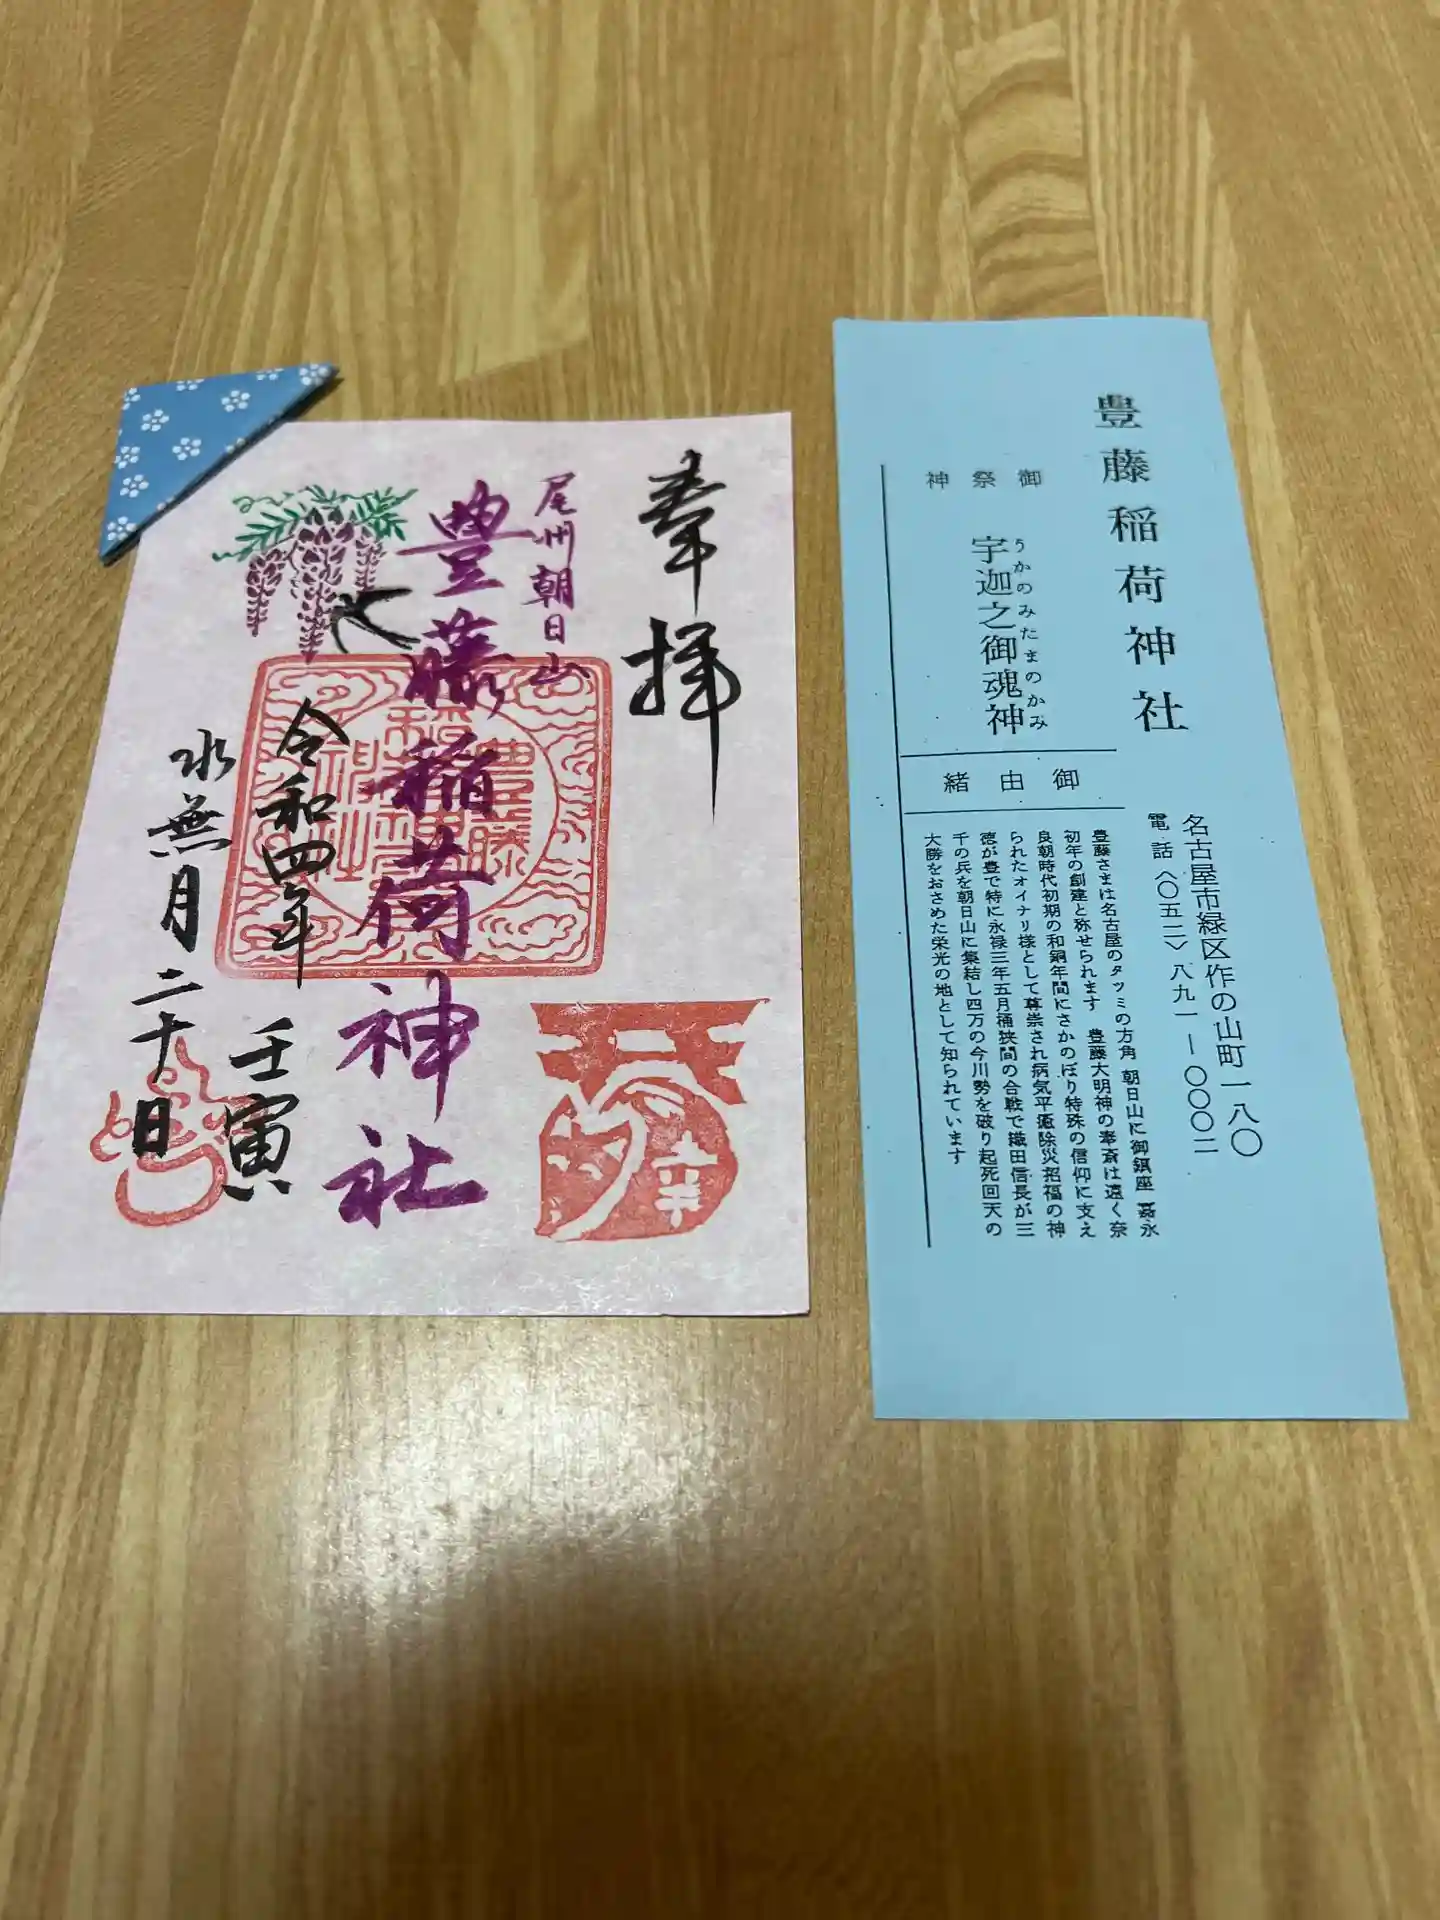 奉拝
尾州朝日山
豊藤稲荷神社
令和四年 壬寅
水無月二十日
豊藤稲荷神社
名古屋市緑区作の山町一八〇
電話〈〇五二〉八九一ー〇〇〇二
御祭神
宇迦之御魂神
うかのみたまのかみ
御由緒
豊藤さまは名古屋のタツミの方角 朝日山に御鎮座 嘉永
初年の創建と称せられます 豊藤大明神の奉斎は遠く奈
良朝時代初期の和銅年間にさかのぼり特殊の信仰に支え
られたオイナリ様として尊崇され病気平癒除災招福の神
徳が豊で特に永禄三年五月桶狭間の合戦で織田信長が三
千の兵を朝日山に集結し四万の今川勢を破り起死回天の
大勝をおさめた栄光の地として知られています